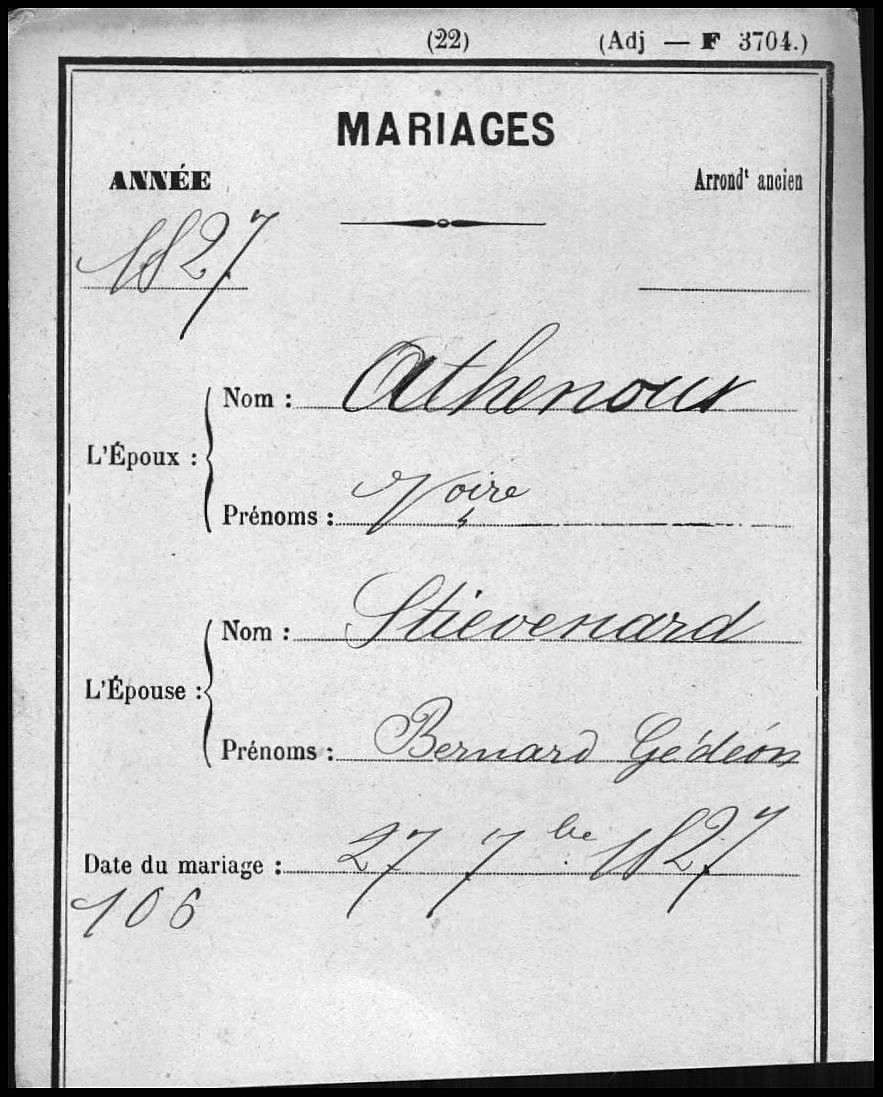 (22) (Adj — F 3704.)
MARIAGES
ANNÉE Arrondt ancien
1827
Nom : Athenoux
L'Époux :
Prénoms : Voire
Nom : Stievenard
L'Épouse :
Prénoms : Bernard Gédéon
Date du mariage : 27 7bre 1827
106